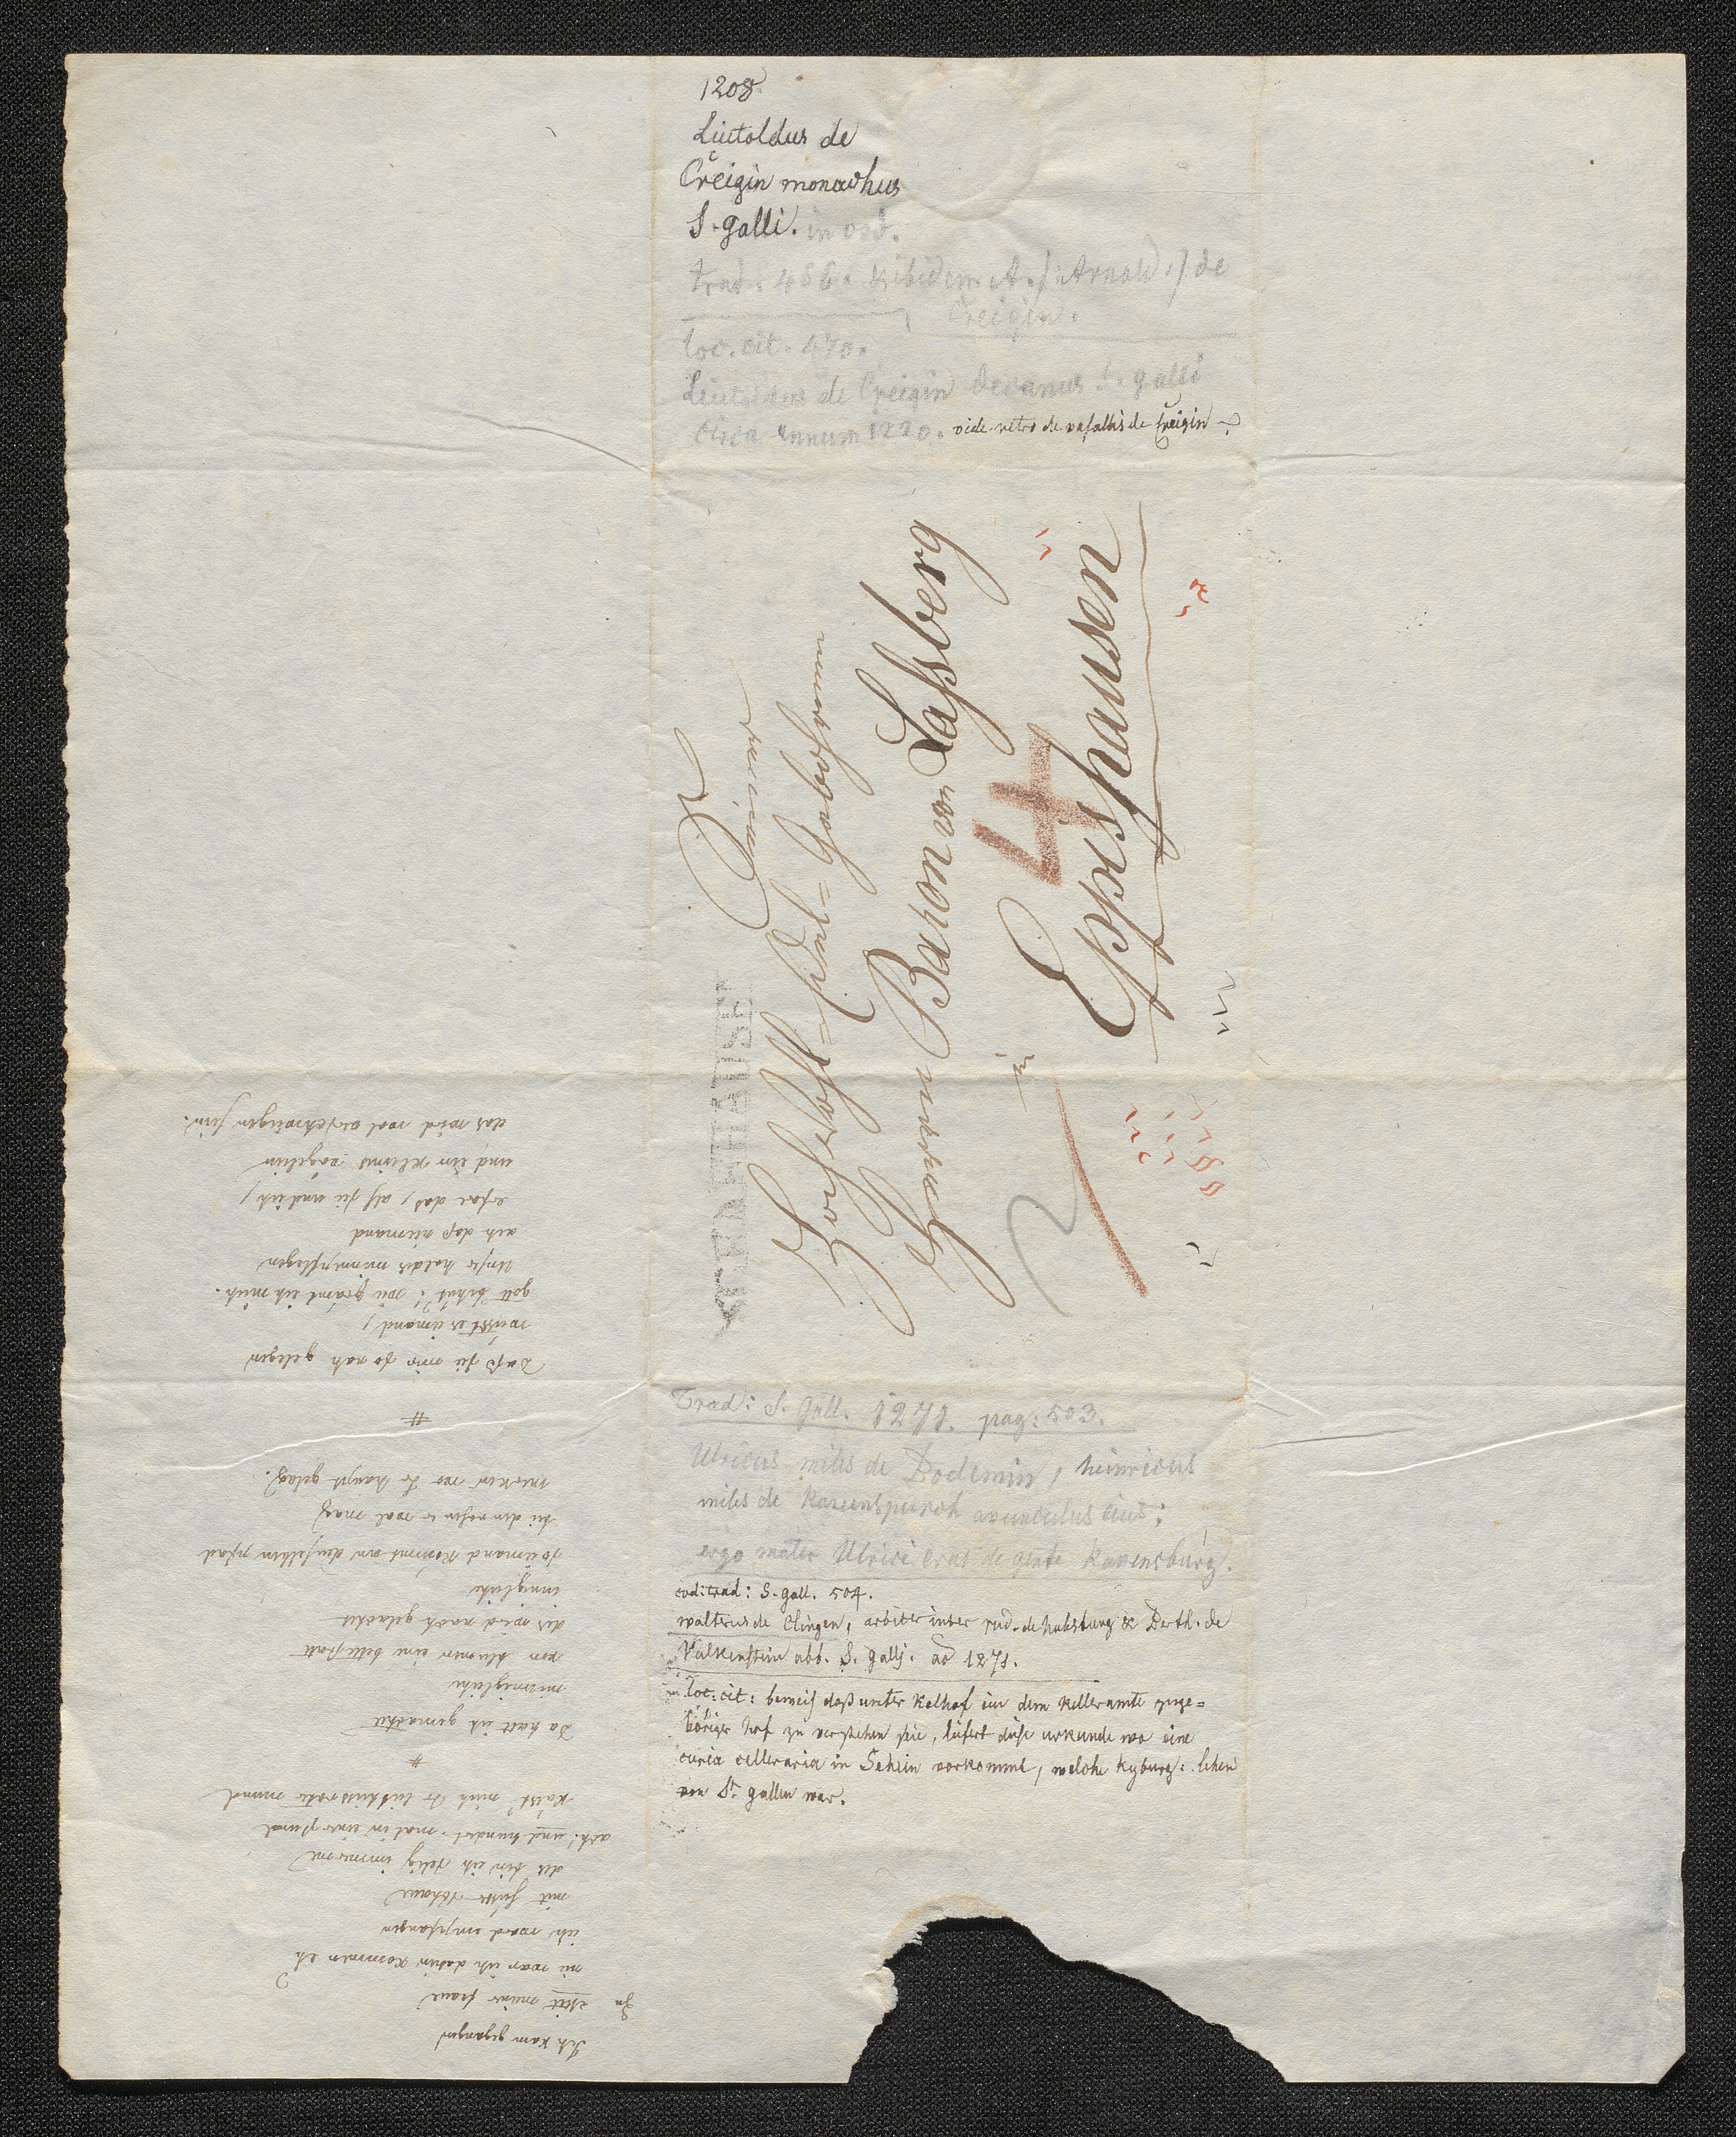 1208
Liutoldus de
Creigin monachus
S. galli. in cod.
trad. 466. & ibidem A. /: Arnold :/ de
Creigin.
loc. cit. 470.
Liutoldus de Creigin decanus S. galli
circa annum 1220. vide retro de vasallis de Creigin
Seiner
Hochwohl-Edel-Gebohren
Herrn Baron von Laßberg
in
Eppishausen
4
Trad: S. Gall. 1271. pag: 503.
Ulricus miles de Bodemin, heinricus
miles de Ravenspurch avunculus eius;
ergo mater Ulrici erat de gente Ravensburg.
cod: trad: S. gall. 504.
walterus de Clingen, arbiter inter rud. de habsburg & Berth. de
Valkenstein abb. S. galli. ao 1271.
loc: cit: beweis daß unter Kelhof ein dem Kelleramte zuge=
höriger hof zu verstehen sei, liefert diese urkunde wo eine
curia celleraria in Sehein vorkommt, welche kyburg: lehen
von St. gallen war.
Ich kam gegangen
Zu meiner fraue
nu war ich dahin kommen eh
ich ward empfangen
mit
des bin ich selig immerme
ach! und hundert mal in einer stund
küsst mich ir mund
#
Da hatt ich gemachet
minnigliche
von blumen eine bettestatt
des wird noch gelachet
inniglich
so iemand kommt an denselben pfad
bei den rosen er wol mag
merken wo ir haupt gelag.
#
Daß sie mir so nah gelegen
wüsst es iemand,
gott behut! wie schämt ich mich.
Unser holdes minnepflegen
ach daß niemand
erfar das, als sie und ich,
und ein kleines vögelein
das wird wol verschwiegen sein.